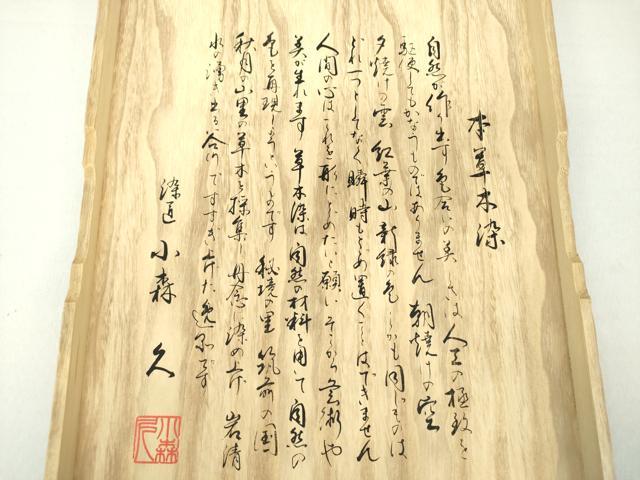 本草木染
自然が作り出す色合いの美しさは人工の極致を
駆使してもかなうものではありません 朝焼けの空
夕焼けの雲 紅葉の山 新緑の色 しかも同じものは
どれ一つとしてなく 瞬時もとめ置くことはできません
人間の心はこれを形にとめたいと願い そこから芸術や
美が生れます 草木染は自然の材料を用いて自然の
色を再現しようというものです 秘境の里 筑前の国
秋月の山里の草木を採集 丹念に染め上げ 岩清
水の湧き出る谷川ですすぎ上げた逸品です
染道 小森 久
小森久